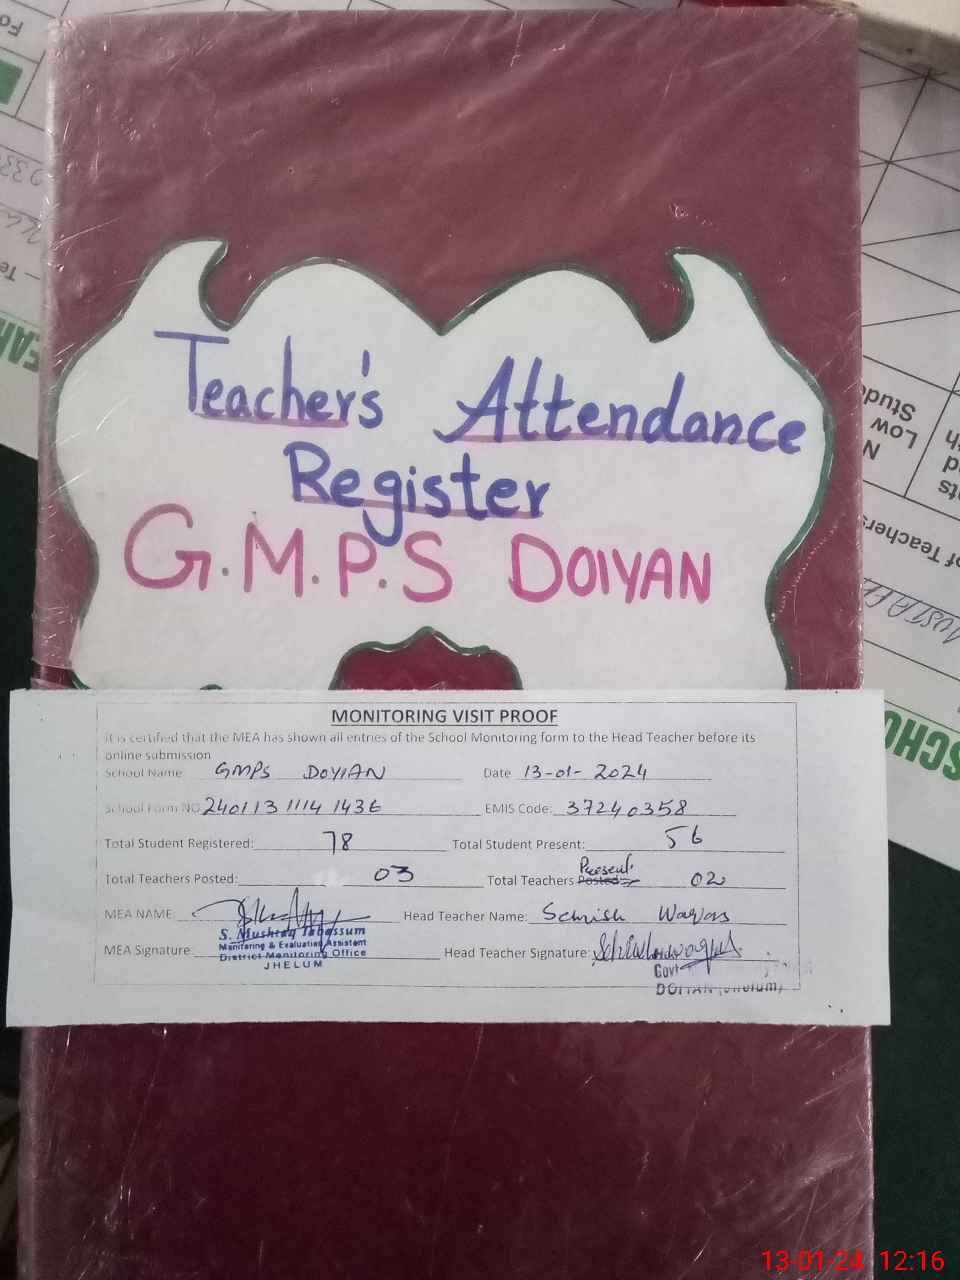 Teacher's Attendance
Register
G.M.P.S DOIYAN
MONITORING VISIT PROOF
It is certified that the MEA has shown all entries of the School Monitoring form to the Head Teacher before its
online submission
School Name GMPS DOYIAN Date 13-01-2024
School Form NO 240113 1114 1436 EMIS Code: 37240358
Total Student Registered: 78 Total Student Present: 56
Total Teachers Posted: 03 Total Teachers Posted: Present 02
MEA NAME Head Teacher Name: Sehrish
S. Mushtaq Tabassum
Monitoring & Evaluation Assistent
District Monitoring Office
JHELUM
MEA Signature: Head Teacher Signature:
Govt
DOIYAN (Jhelum)
No
Low
Stude
of Teachers
SCHO
13-01-24 12:16